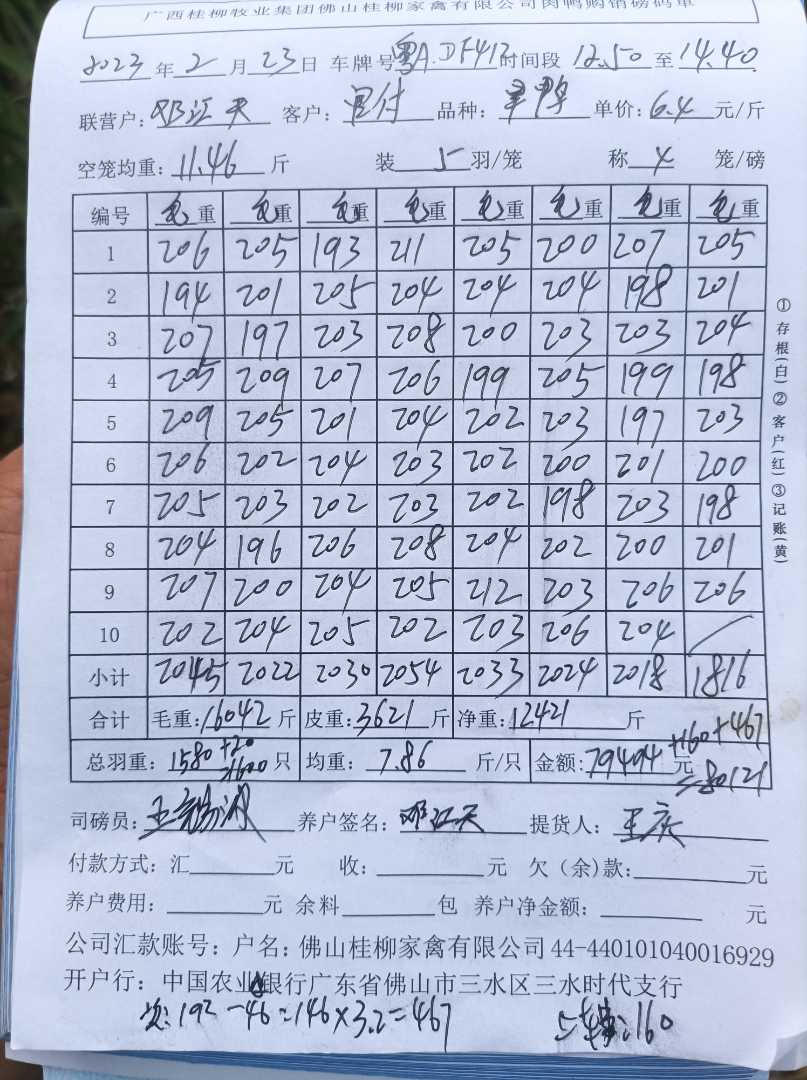 广西桂柳牧业集团佛山桂柳家禽有限公司肉鸭购销磅码单
2023 年 2 月 23 日 车牌号 粤A.DF412 时间段 12.50 至 14.40
联营户: 邓江天 客户: 客户: 付 品种: 鸭 单价: 6.4 元/斤
空笼均重: 11.46 斤 装 5 羽/笼 称 4 笼/磅
编号 毛重 毛重 毛重 毛重 毛重 毛重 毛重 毛重
1 206 205 193 211 205 200 207 205
2 194 201 205 204 204 204 198 201
3 207 197 203 208 200 203 203 204
4 205 209 207 206 199 205 199 198
5 209 205 201 204 202 203 197 203
6 206 202 204 203 202 200 201 200
7 205 203 202 203 202 198 203 198
8 204 196 206 208 204 202 200 201
9 207 200 204 205 212 203 206 206
10 202 204 205 202 203 206 204 /
小计 2045 2022 2030 2054 2033 2024 2018 1816
合计 毛重: 16042 斤 皮重: 3621 斤 净重: 12421 斤
总羽重: 1580 +20 =1600 只 均重: 7.86 斤/只 金额: 79494 元 +160+467 =80121
司磅员: 养户签名: 邓江天 提货人: 王庆
付款方式: 汇 元 收: 元 欠(余)款: 元
养户费用: 元 余料 包 养户净金额: 元
公司汇款账号: 户名: 佛山桂柳家禽有限公司 44-440101040016929
开户行: 中国农业银行广东省佛山市三水区三水时代支行
次: 192-46=146×3.2=467 上车: 160
① 存根(白) ② 客户(红) ③ 记账(黄)